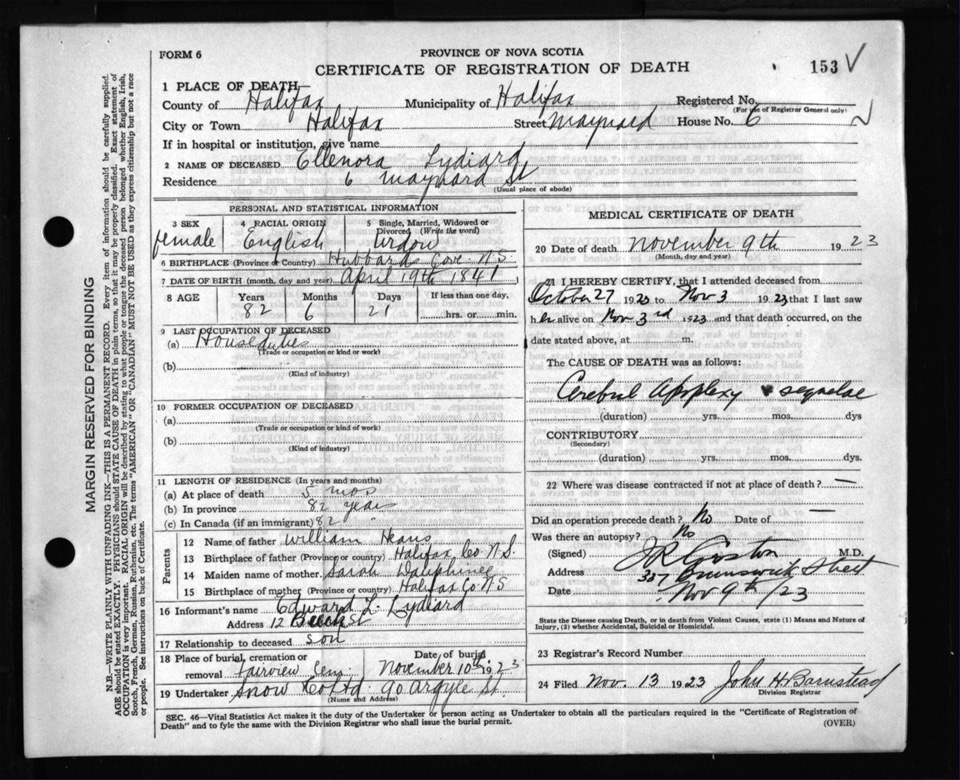 FORM 6
PROVINCE OF NOVA SCOTIA
CERTIFICATE OF REGISTRATION OF DEATH
153
MARGIN RESERVED FOR BINDING
N.B.—WRITE PLAINLY WITH UNFADING INK—THIS IS A PERMANENT RECORD. Every item of information should be carefully supplied.
AGE should be stated EXACTLY. PHYSICIANS should STATE CAUSE OF DEATH in plain terms, so that it may be properly classified. Exact statement of
OCCUPATION is very important. RACIAL ORIGIN will be described by stating to what people or tongue the deceased person belonged whether English, Irish,
Scotch, French, German, Russian, Ruthenian, etc. The terms "AMERICAN" OR "CANADIAN" MUST NOT BE USED as they express citizenship but not a race
or people. See instructions on back of Certificate.
1 PLACE OF DEATH
County of Halifax Municipality of Halifax Registered No.
(For use of Registrar General only)
City or Town Halifax Street Maynard House No. 6
If in hospital or institution, give name
2 NAME OF DECEASED Ellenora Lydiard
Residence 6 Maynard St
(Usual place of abode)
PERSONAL AND STATISTICAL INFORMATION
3 SEX female
4 RACIAL ORIGIN English
5 Single, Married, Widowed or Divorced (Write the word) Widow
6 BIRTHPLACE (Province or Country) Hubbards Cove N.S.
7 DATE OF BIRTH (month, day and year) April 19th 1841
8 AGE Years 82 Months 6 Days 21 If less than one day, hrs. or min.
9 LAST OCCUPATION OF DECEASED
(a) House duties
(Trade or occupation or kind or work)
(b)
(Kind of industry)
10 FORMER OCCUPATION OF DECEASED
(a)
(Trade or occupation or kind or work)
(b)
(Kind of industry)
11 LENGTH OF RESIDENCE (In years and months)
(a) At place of death 5 mos
(b) In province 82 years
(c) In Canada (if an immigrant) 82 "
Parents
12 Name of father William
13 Birthplace of father (Province or country) Halifax Co N.S.
14 Maiden name of mother Sarah Dauphinee
15 Birthplace of mother (Province or country) Halifax Co N S
16 Informant's name Edward L. Lydiard
Address 12 St
17 Relationship to deceased son
18 Place of burial, cremation or removal Fairview Cem Date of burial November 10th 1923
19 Undertaker Snow & Co Ltd 90 Argyle St.
(Name and Address)
MEDICAL CERTIFICATE OF DEATH
20 Date of death November 9th 1923
(Month, day and year)
21 I HEREBY CERTIFY, that I attended deceased from
October 27 1923 to Nov 3 1923 that I last saw
her alive on Nov 3rd 1923 and that death occurred, on the
date stated above, at m.
The CAUSE OF DEATH was as follows:
Cerebral Apoplexy sequelae
(duration) yrs. mos. dys
CONTRIBUTORY
(Secondary)
(duration) yrs. mos. dys.
22 Where was disease contracted if not at place of death? —
Did an operation precede death? No Date of —
Was there an autopsy? No
(Signed) M.D.
Address 337 Brunswick Street
Date Nov 9th /23
State the Disease causing Death, or in death from Violent Causes, state (1) Means and Nature of
Injury, (2) whether Accidental, Suicidal or Homicidal.
23 Registrar's Record Number
24 Filed Nov. 13 1923 John H Barnstead
Division Registrar
SEC. 46—Vital Statistics Act makes it the duty of the Undertaker or person acting as Undertaker to obtain all the particulars required in the "Certificate of Registration of
Death" and to fyle the same with the Division Registrar who shall issue the burial permit.
(OVER)